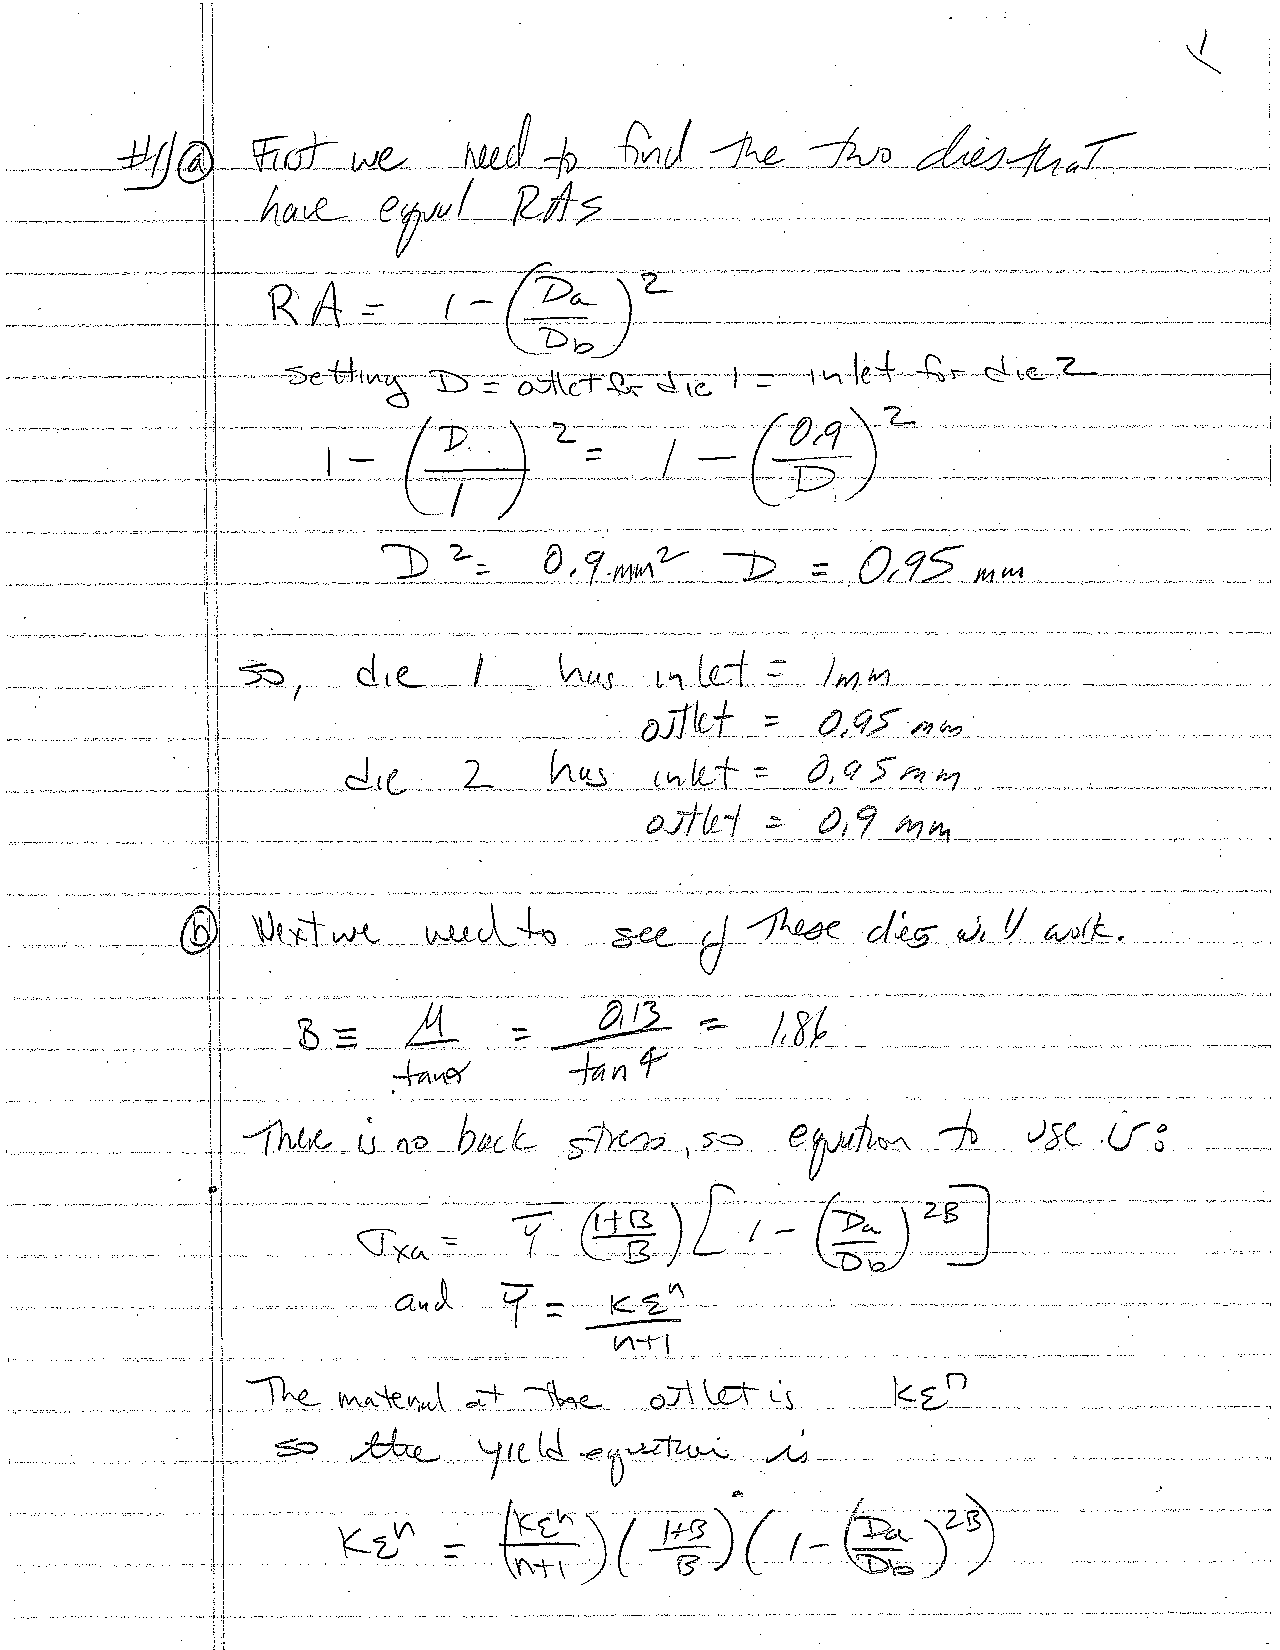 1
#1) a First we need to find the two dies that
have equal RAs
RA = 1 - (Da/Db)^2
setting D = outlet for die 1 = inlet for die 2
1 - (D/1)^2 = 1 - (0.9/D)^2
D^2 = 0.9 mm^2 D = 0.95 mm
so, die 1 has inlet = 1mm
outlet = 0.95 mm
die 2 has inlet = 0.95 mm
outlet = 0.9 mm
b Next we need to see if these dies will work.
B ≡ μ/tanα = 0.13/tan 4 = 1.86
There is no back stress, so equation to use is:
σxa = Ȳ ((1+B)/B) [1 - (Da/Db)^2B]
and Ȳ = Kε^n/(n+1)
The material at the outlet is Kε^n
so the yield equation is
Kε^n = (Kε^n/(n+1)) ((1+B)/B) (1 - (Da/Db)^2B)